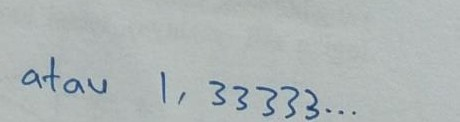 atau 1, 33333...